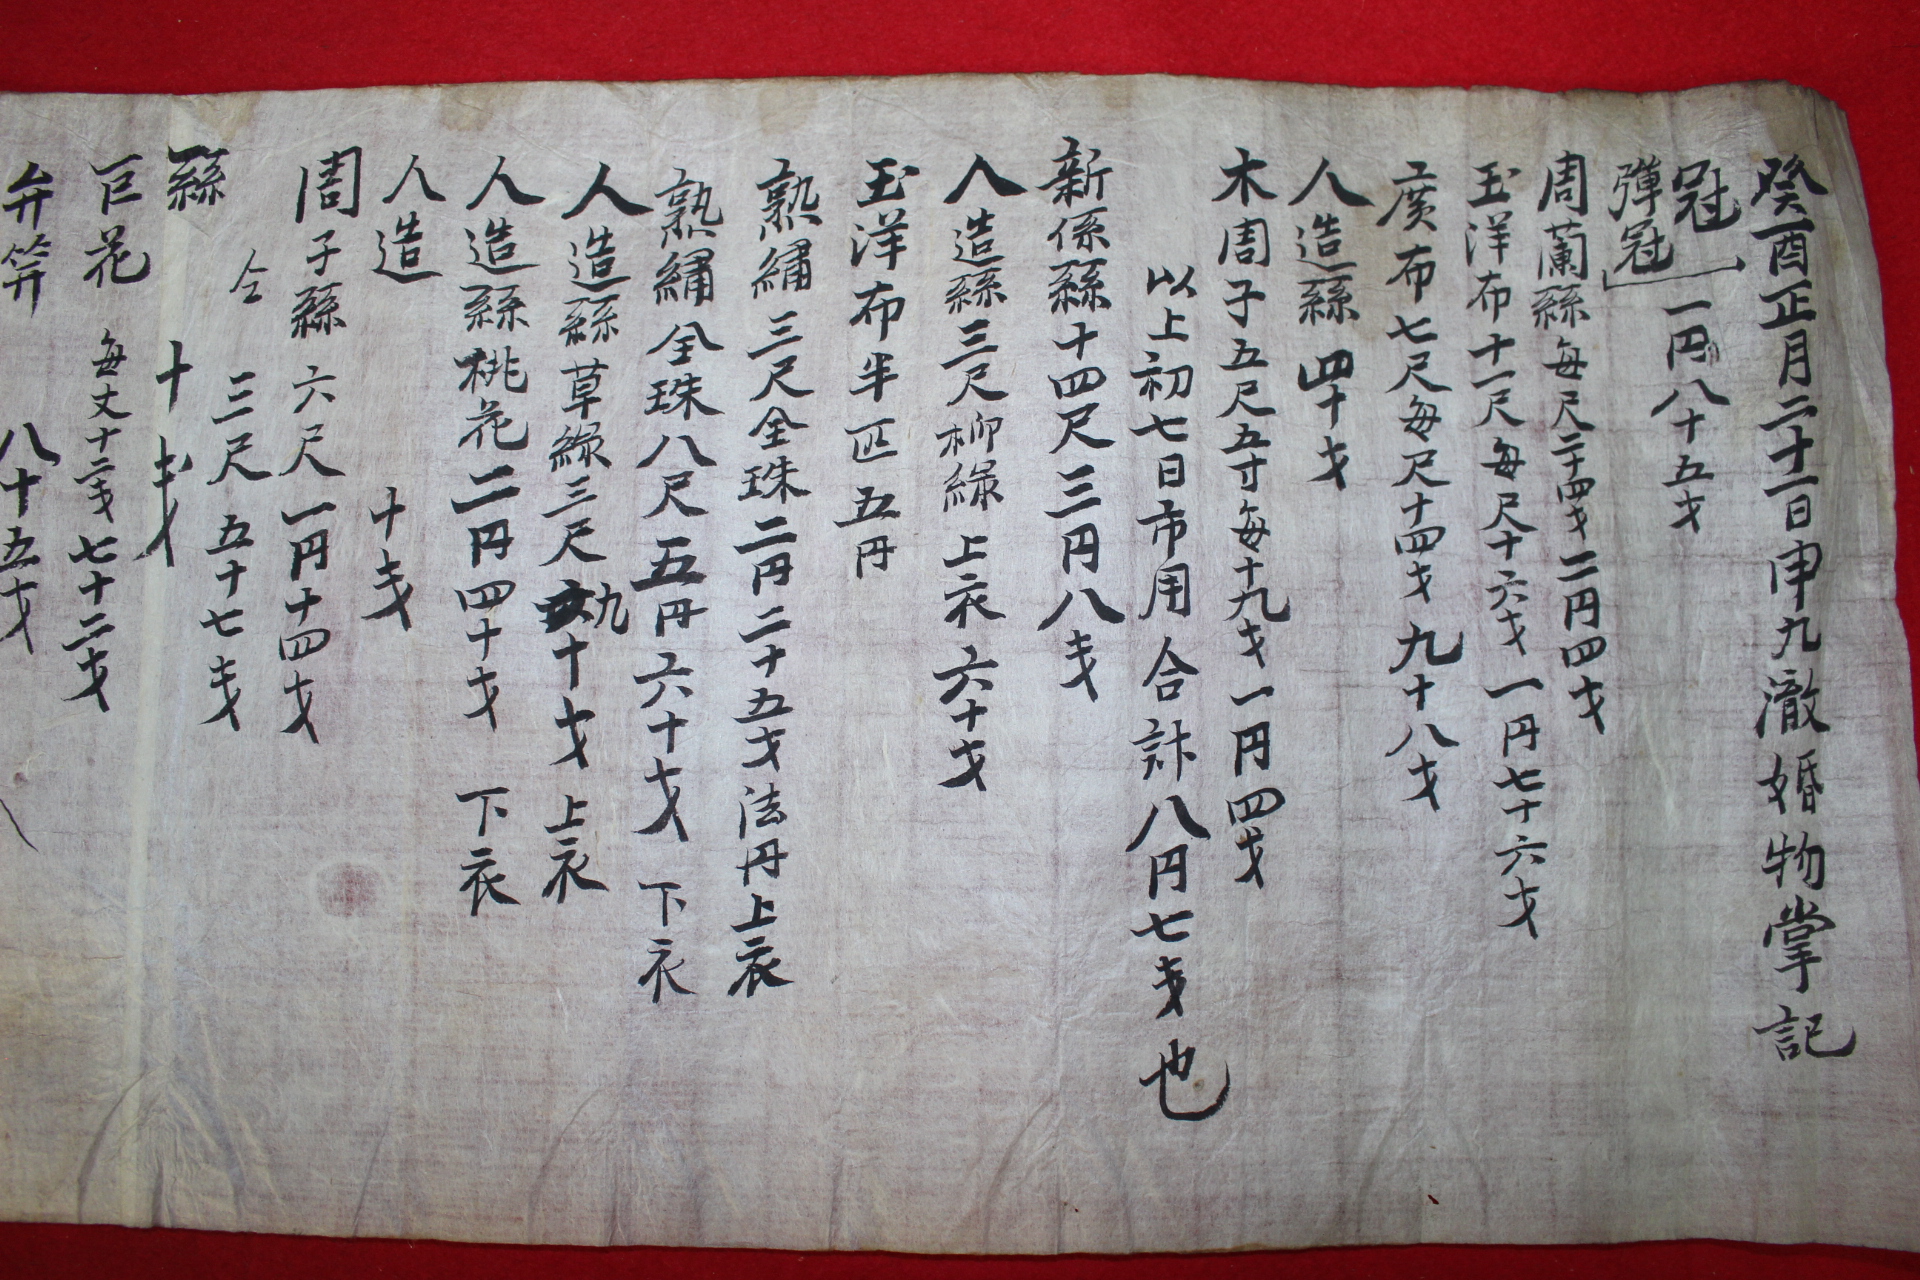 癸酉正月二十一日申九澈婚物掌記
冠 一円八十五戋
彈冠
周蘭絲每尺二十四戋二円四戋
玉洋布十一尺每尺十六戋一円七十六戋
広布七尺每尺十四戋九十八戋
人造絲四十戋
木周子五尺五寸每十九戋一円四戋
以上初七日市用合計八円七戋也
新係絲十四尺三円八戋
人造絲三尺柳綠上衣六十戋
玉洋布半匹五円
熟繡三尺全珠二円二十五戋法円上衣
熟繡全珠八尺五円六十戋下衣
人造絲草綠三尺九十戋上衣
人造絲桃花二円四十戋下衣
人造 十戋
周子絲六尺一円十四戋
仝 三尺五十七戋
絲 十戋
巨花 每丈十二戋七十二戋
弁笄 八十五戋